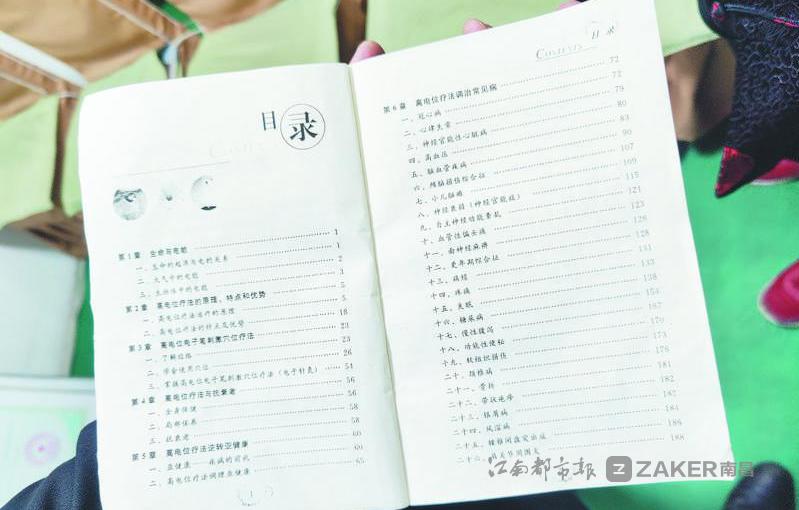 目录
第1章 生命与电能 1
一、生命的起源与电的关系 1
二、大气中的电能 2
三、生物体中的电能 3
第2章 高电位疗法的原理、特点和优势 5
一、高电位疗法治疗的原理 5
二、高电位疗法的特点及优势 18
第3章 高电位电子笔刺激穴位疗法 23
一、了解经络 23
二、学会使用穴位 26
三、掌握高电位电子笔刺激穴位疗法(电子针灸) 54
第4章 高电位疗法与抗衰老 56
一、全身保健 56
二、局部保养 58
三、抗衰老 58
第5章 高电位疗法逆转亚健康 60
一、亚健康——疾病的前机 60
二、高电位疗法调理亚健康 65
1
目录
第6章 高电位疗法调治常见病 72
一、冠心病 72
二、心律失常 79
三、神经官能性心脏病 80
四、高血压 83
五、脑血管疾病 90
六、颅脑损伤综合征 107
七、小儿脑瘫 109
八、神经衰弱(神经官能症) 115
九、自主神经功能紊乱 121
十、血管性偏头痛 123
十一、面神经麻痹 126
十二、更年期综合征 128
十三、癫痫 131
十四、疼痛 133
十五、失眠 138
十六、糖尿病 154
十七、慢性腹泻 167
十八、功能性便秘 170
十九、软组织损伤 173
二十、颈椎病 176
二十一、骨折 181
二十二、带状疱疹 182
二十三、银屑病 187
二十四、风湿病 184
二十五、腰椎间盘突出症 186
二十六、肩关节周围炎 188
江南都市报 ZAKER南昌